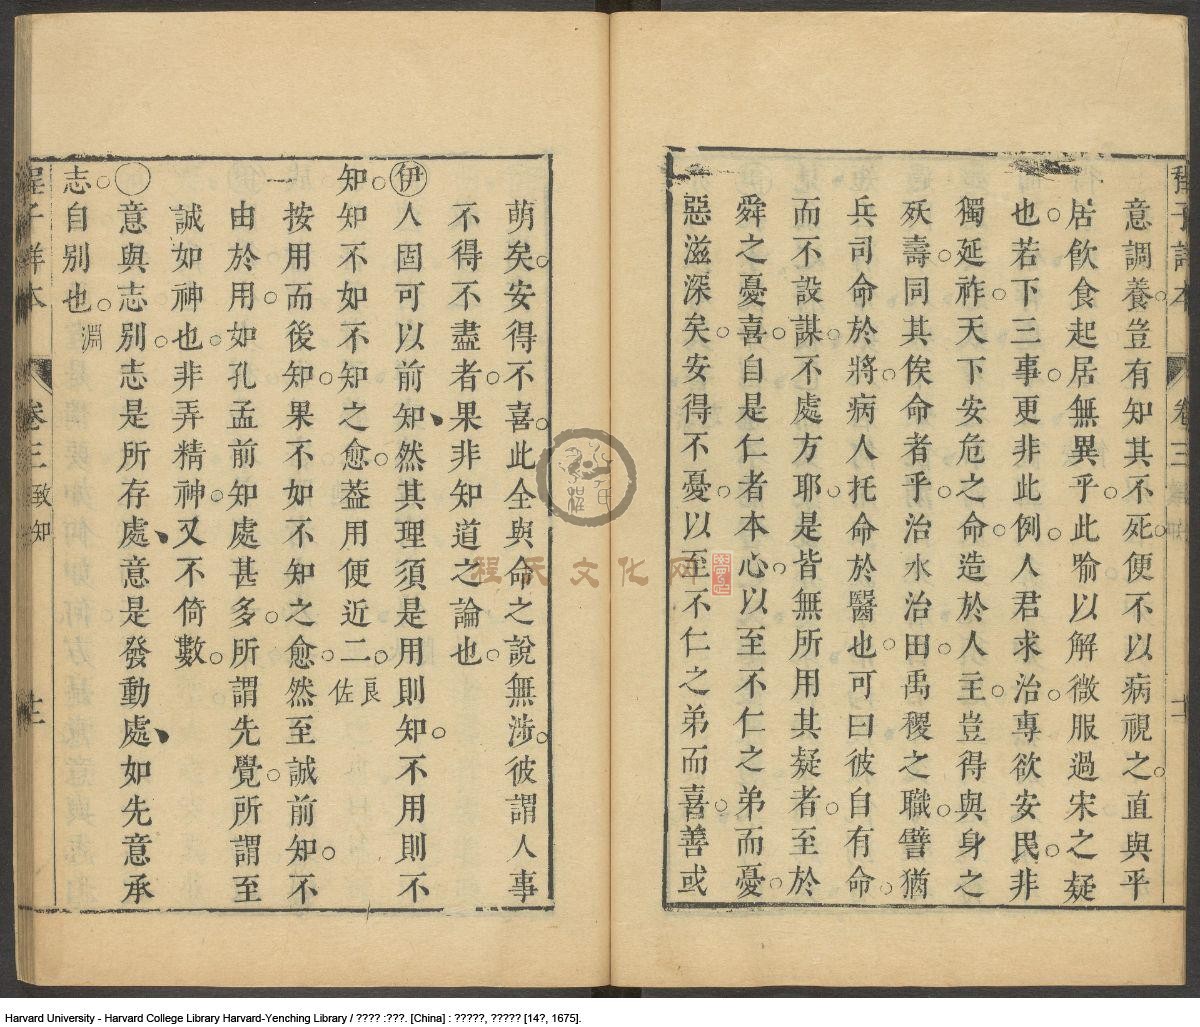 意調養豈有知其不死便不以病視之直與平
居飲食起居無異乎此喻以解微服過宋之疑
也若下三事更非此例人君求治專欲安民非
獨延祚天下安危之命造於人主豈得與身之
殀壽同其俟命者乎治水治田禹稷之職譬猶
兵司命於將病人托命於醫也可曰彼自有命
而不設謀不處方耶是皆無所用其疑者至於
舜之憂喜自是仁者本心以至不仁之弟而憂
惡滋深矣安得不憂以至不仁之弟而喜善或
萌矣安得不喜此全與命之說無涉彼謂人事
不得不盡者果非知道之論也
伊人固可以前知然其理須是用則知不用則不
知知不如不知之愈葢用便近二
良佐
按用而後知果不如不知之愈然至誠前知不
由於用如孔孟前知處甚多所謂先覺所謂至
誠如神也非弄精神又不倚數
意與志别志是所存處意是發動處如先意承
志自别也
淵
程子詳本 卷三 致知
程氏文化网
Harvard University - Harvard College Library Harvard-Yenching Library / ???? :???. [China] : ?????, ????? [14?, 1675].